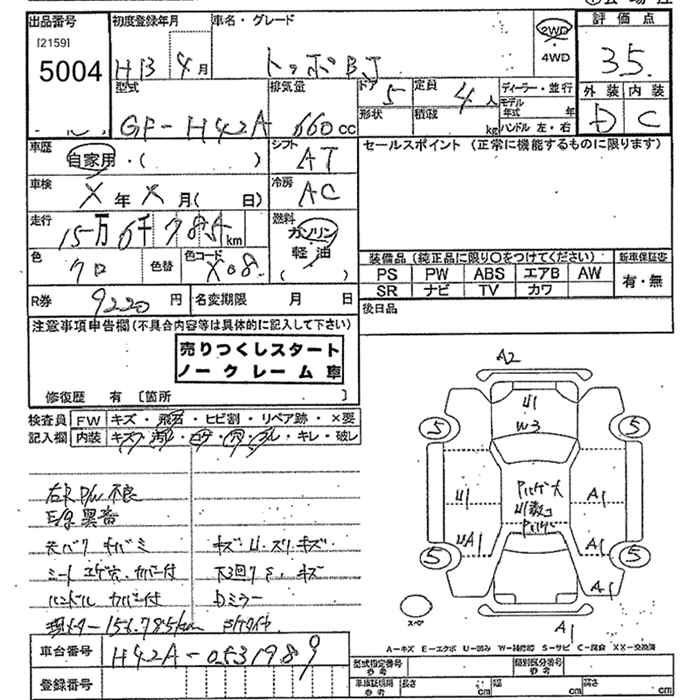 出品番号
[2159]
5004
初度登録年月
H13 4月
車名・グレード
トッポBJ
2WD
・
4WD
評価点
3.5
型式
GF-H42A
排気量
660cc
ドア
5
定員
4人
形状
積載
kg
ディーラー・並行
モデル年式 年
ハンドル 左・右
外装
D
内装
C
車歴
自家用・( )
シフト
AT
セールスポイント (正常に機能するものに限ります)
車検
X年X月( 日)
冷房
AC
走行
15万6千785km
燃料
ガソリン
軽油
( )
色
クロ
色替
色コード
X08
装備品 (純正品に限り〇をつけてください)
新車保証書
PS PW ABS エアB AW
SR ナビ TV カワ
有・無
R券
9220円
名変期限 月 日
後日品
注意事項申告欄(不具合内容等は具体的に記入して下さい)
売りつくしスタート
ノークレーム車
修復歴 有 [箇所 ]
検査員
記入欄
FW キズ・飛石・ヒビ割・リペア跡・×要
内装 キズ・汚レ・コゲ・穴・スレ・キレ・破レ
右R P/W 不良
E/g 異音
シート コゲ穴、カバー付
ハンドル カバー付
キズ・U・スリキズ
下回り S、キズ
Dミラー
現メーター156,785km
車台番号
H42A-0531989
登録番号
A2
U1
W3
5
5
5
5
U1
UA1
A1
A1
A1
A1
スペア
A-キズ E-エクボ U-凹み W-補修跡 S-サビ C-腐食 XX-交換済
型式指定番号
参考
類別区分番号
参考
車検証積用
参考
長さ cm
幅 cm
高さ cm